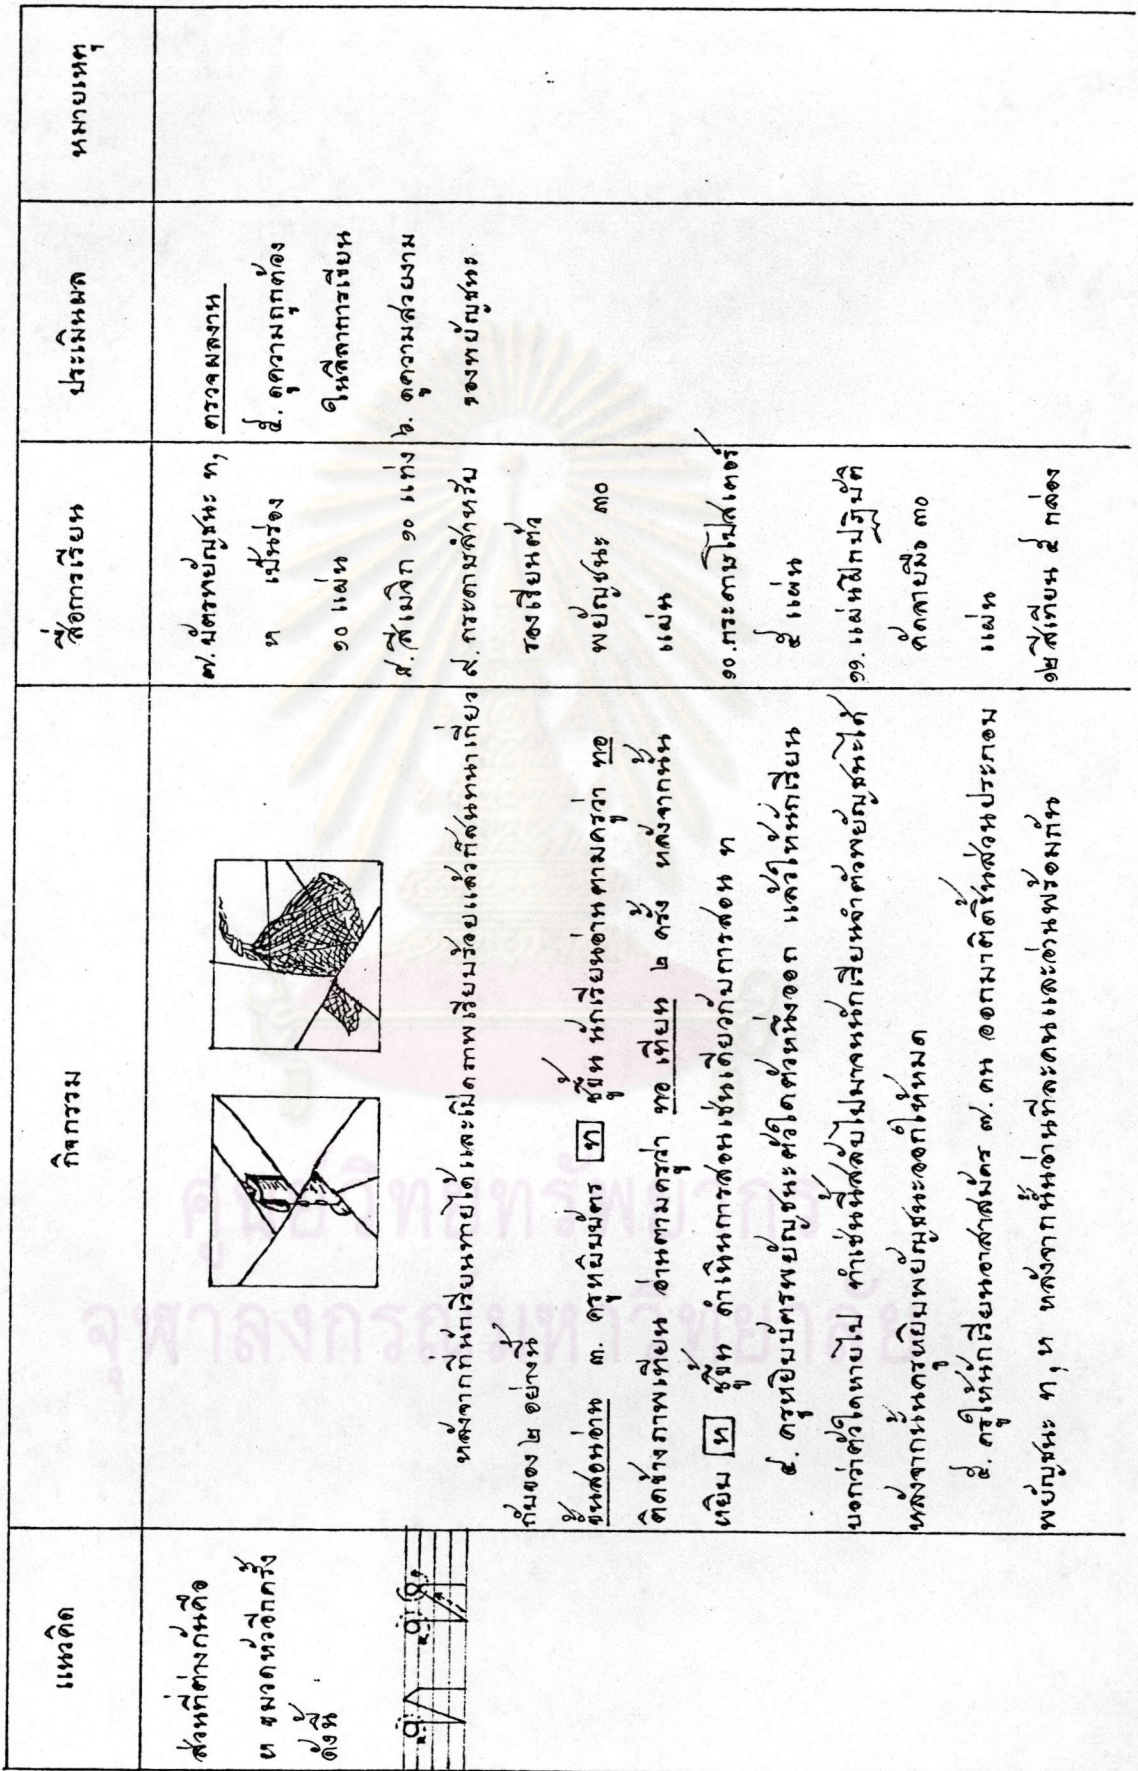 แนวคิด
กิจกรรม
สื่อการเรียน
ประเมินผล
หมายเหตุ
ส่วนที่ต่างกันคือ
ห ขมวดหัวอีกครั้ง
ดังนี้
หลังจากที่นักเรียนทายได้และเปิดภาพเรียบร้อยแล้วก็สนทนาเกี่ยว
กับของ ๒ อย่างนี้
ขั้นสอนอ่าน ๓. ครูหยิบบัตร ท ชูขึ้น นักเรียนอ่านตามครูว่า ทอ
ติดข้างภาพเทียน อ่านตามครูว่า ทอ เทียน ๒ ครั้ง หลังจากนั้น
หยิบ ห ชูขึ้น ดำเนินการสอนเช่นเดียวกับการสอน ท
๔. ครูหยิบบัตรพยัญชนะตัวใดตัวหนึ่งออก แล้วให้นักเรียน
บอกว่าตัวใดหายไป ทำเช่นนี้สลับไปมาจนนักเรียนจำตัวพยัญชนะได้
หลังจากนั้นครูหยิบพยัญชนะออกให้หมด
๕. ครูให้นักเรียนอาสาสมัคร ๗ คน ออกมาติดชิ้นส่วนประกอบ
พยัญชนะ ท, ห หลังจากนั้นอ่านทีละคนและอ่านพร้อมกัน
๗. บัตรพยัญชนะ ท,
ห เป็นร่อง
๑๐ แผ่น
๘. สีเมจิก ๑๐ แท่ง
๙. กระดาษสำหรับ
รองเขียนตัว
พยัญชนะ ๓๐
แผ่น
๑๐. กระดาษโปสเตอร์
๕ แผ่น
๑๑. แผ่นฝึกปฏิบัติ
คัดลายมือ ๓๐
แผ่น
๑๒ สีเทียน ๕ กล่อง
ตรวจผลงาน
๕. ดูความถูกต้อง
ในลีลาการเขียน
๖. ดูความสวยงาม
ของพยัญชนะ
ศูนย์วิทยทรัพยากร
จุฬาลงกรณ์มหาวิทยาลัย